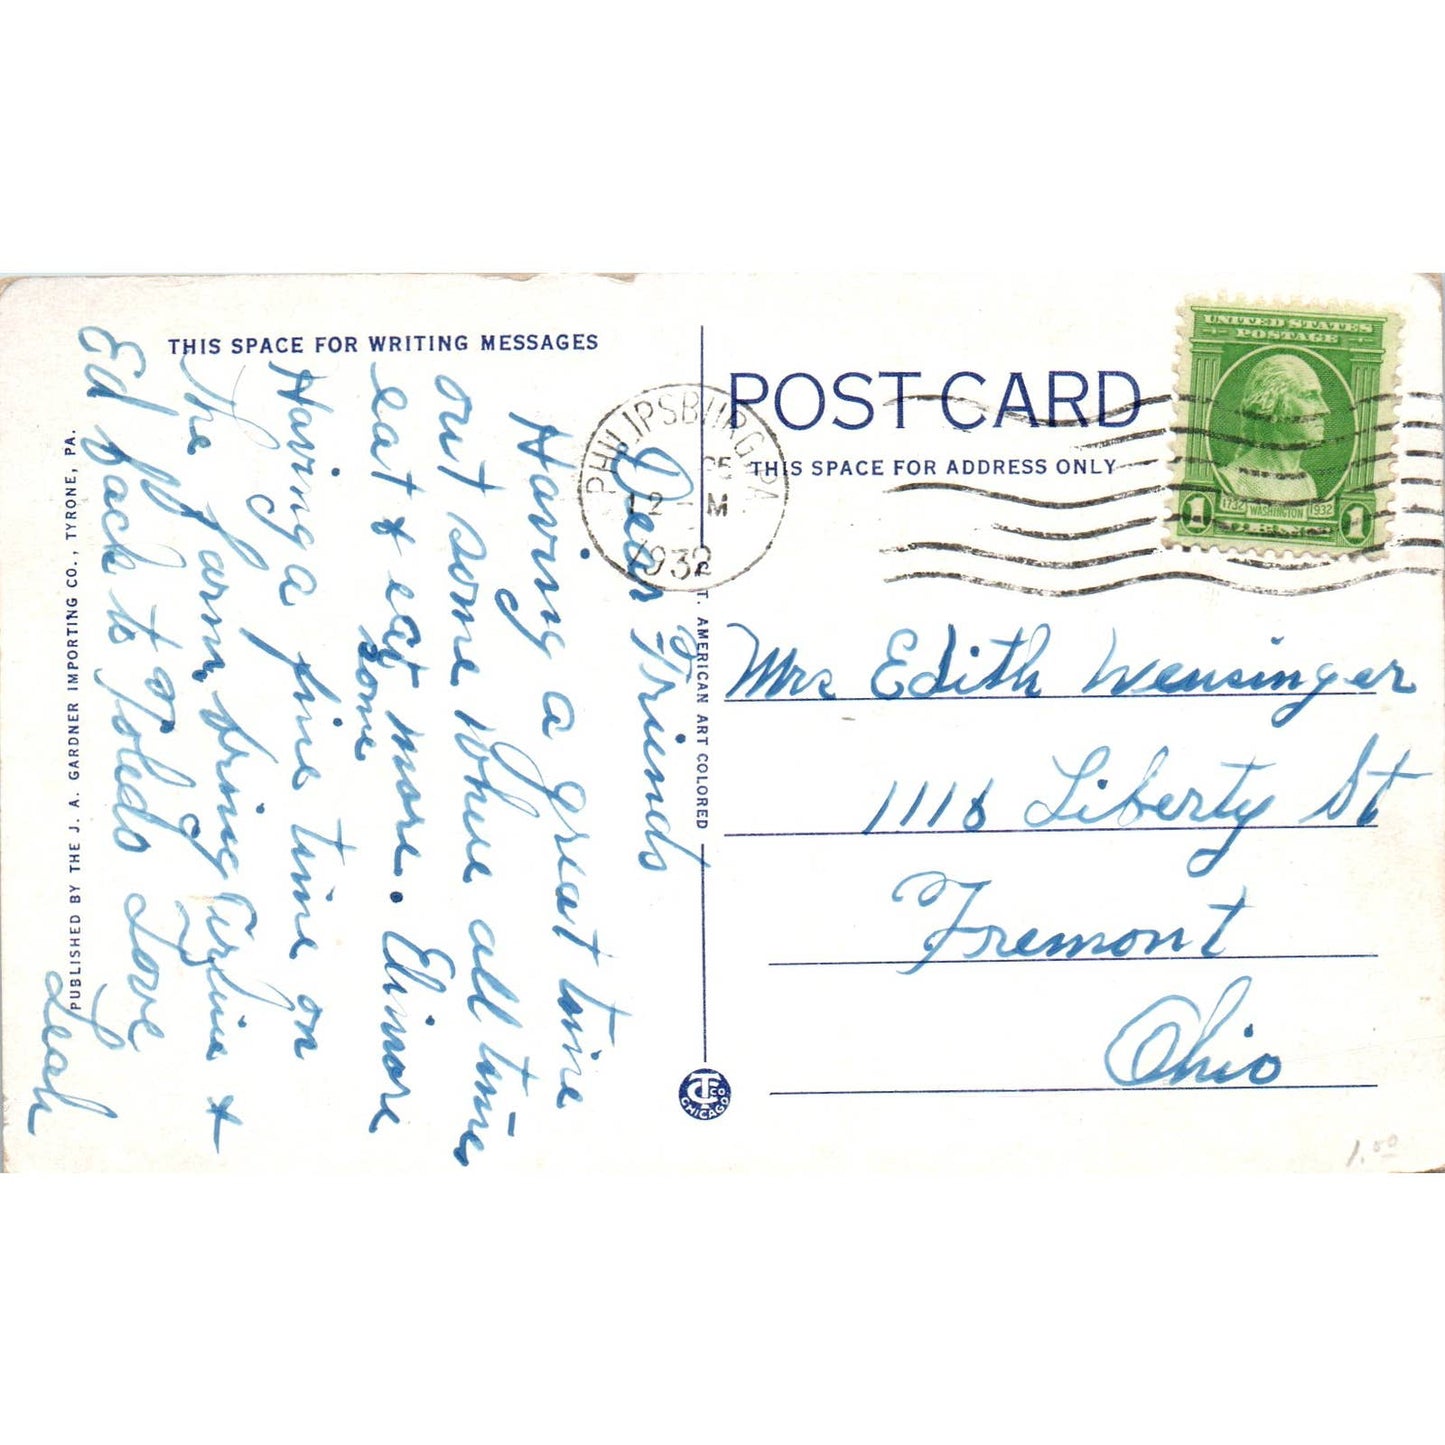 THIS SPACE FOR WRITING MESSAGES
Dear Friends
Having a great time
out some where all times
eat & eat some more. Elinore
Having a fine time on
the farm, bring Arline &
Ed back to Toledo Love
Leah
PUBLISHED BY THE J. A. GARDNER IMPORTING CO., TYRONE, PA.
T. AMERICAN ART COLORED
CT CO
CHICAGO
POST CARD
THIS SPACE FOR ADDRESS ONLY
PHILIPSBURG, PA
12 M
1932
UNITED STATES
POSTAGE
1732 WASHINGTON 1932
1 CENT 1
Mrs Edith Wensinger
1116 Liberty St
Fremont
Ohio
1.00